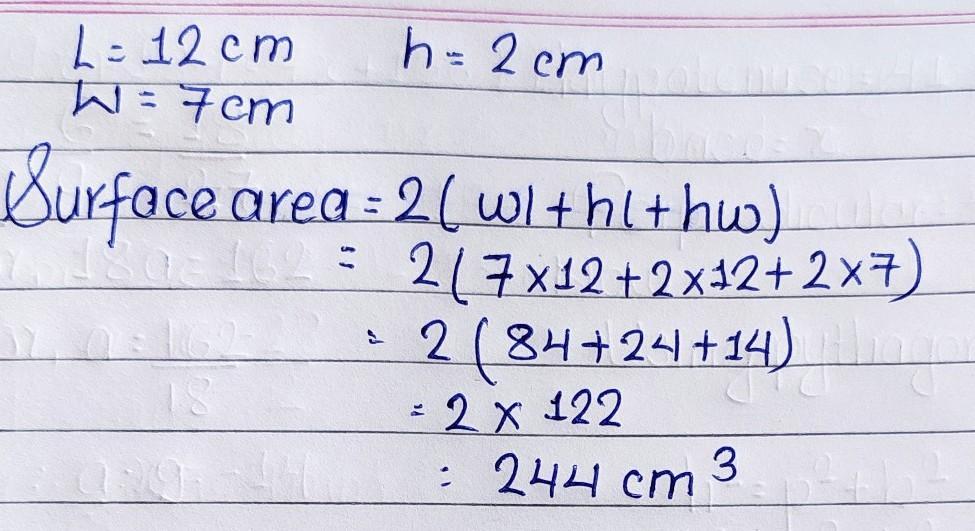 L = 12 cm h = 2 cm
W = 7 cm
Surface area = 2 ( wl + hl + hw )
= 2 ( 7 × 12 + 2 × 12 + 2 × 7 )
= 2 ( 84 + 24 + 14 )
= 2 × 122
= 244 cm³